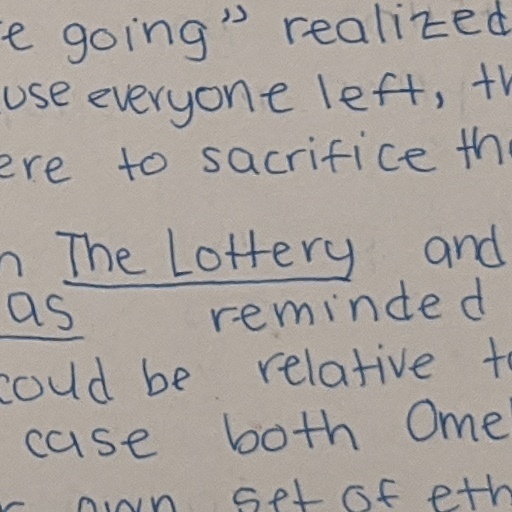 e going" realized
use everyone left, th
ere to sacrifice the
n The Lottery and
as reminded
could be relative to
case both Omel
r own set of eth